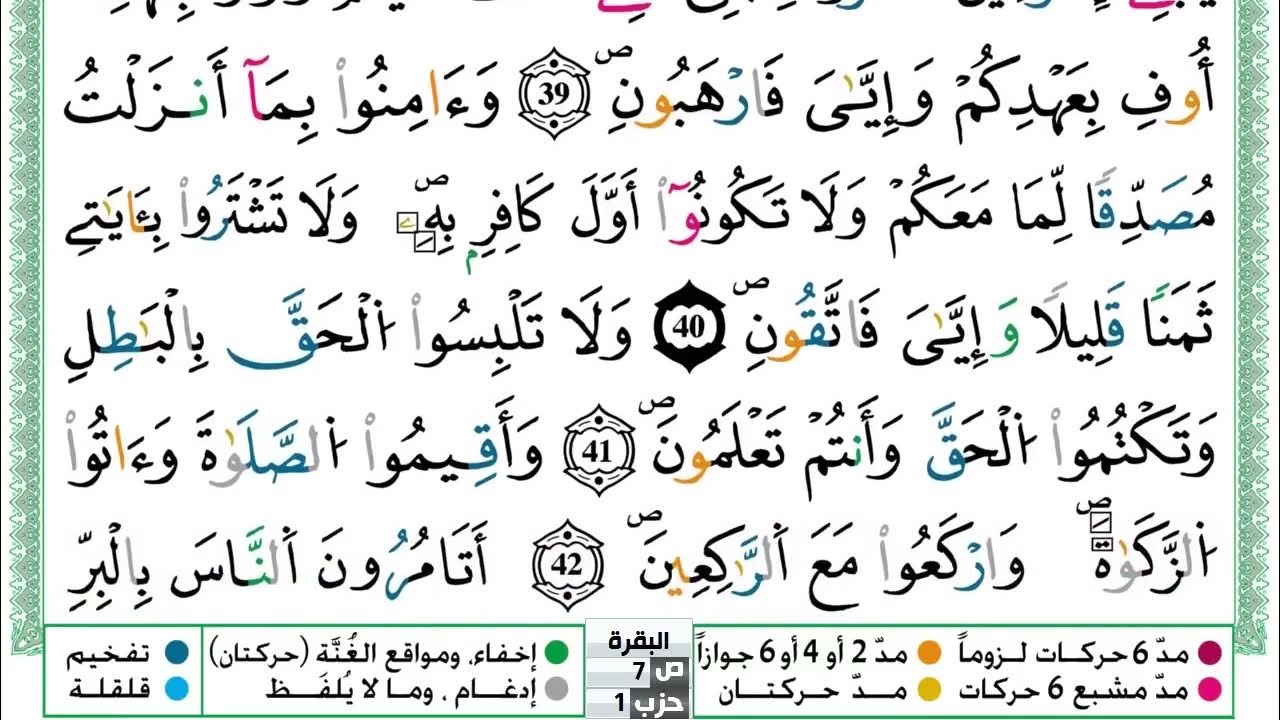 أُوفِ بِعَهْدِكُمْ وَإِيَّـٰيَ فَارْهَبُونِ ص 39 وَءَامِنُواْ بِمَآ أَنزَلْتُ
مُصَدِّقًا لِّمَا مَعَكُمْ وَلَا تَكُونُوٓاْ أَوَّلَ كَافِرِۢ بِهِۦ ص وَلَا تَشْتَرُواْ بِـَٔايَـٰتِے
ثَمَنًا قَلِيلًا وَإِيَّـٰيَ فَاتَّقُونِ ص 40 وَلَا تَلْبِسُواْ اُ۬لْحَقَّ بِالْبَـٰطِلِ
وَتَكْتُمُواْ اُ۬لْحَقَّ وَأَنتُمْ تَعْلَمُونَ ص 41 وَأَقِيمُواْ اُ۬لصَّلَوٰةَ وَءَاتُواْ
اُ۬لزَّكَوٰةَ ص وَارْكَعُواْ مَعَ اَ۬لرَّٰكِعِينَ ص 42 أَتَامُرُونَ اَ۬لنَّاسَ بِالْبِرِّ
مدّ 6 حركات لـزوماً مدّ 2 أو 4 أو 6 جوازاً البقرة إخفاء، ومواقع الغُنَّة (حركتان) تفخيم
مدّ مشبع 6 حركات مــدّ حــركتــان ص 7 إدغـام ، ومـا لا يُلفَـظ قلقلـة
حزب 1